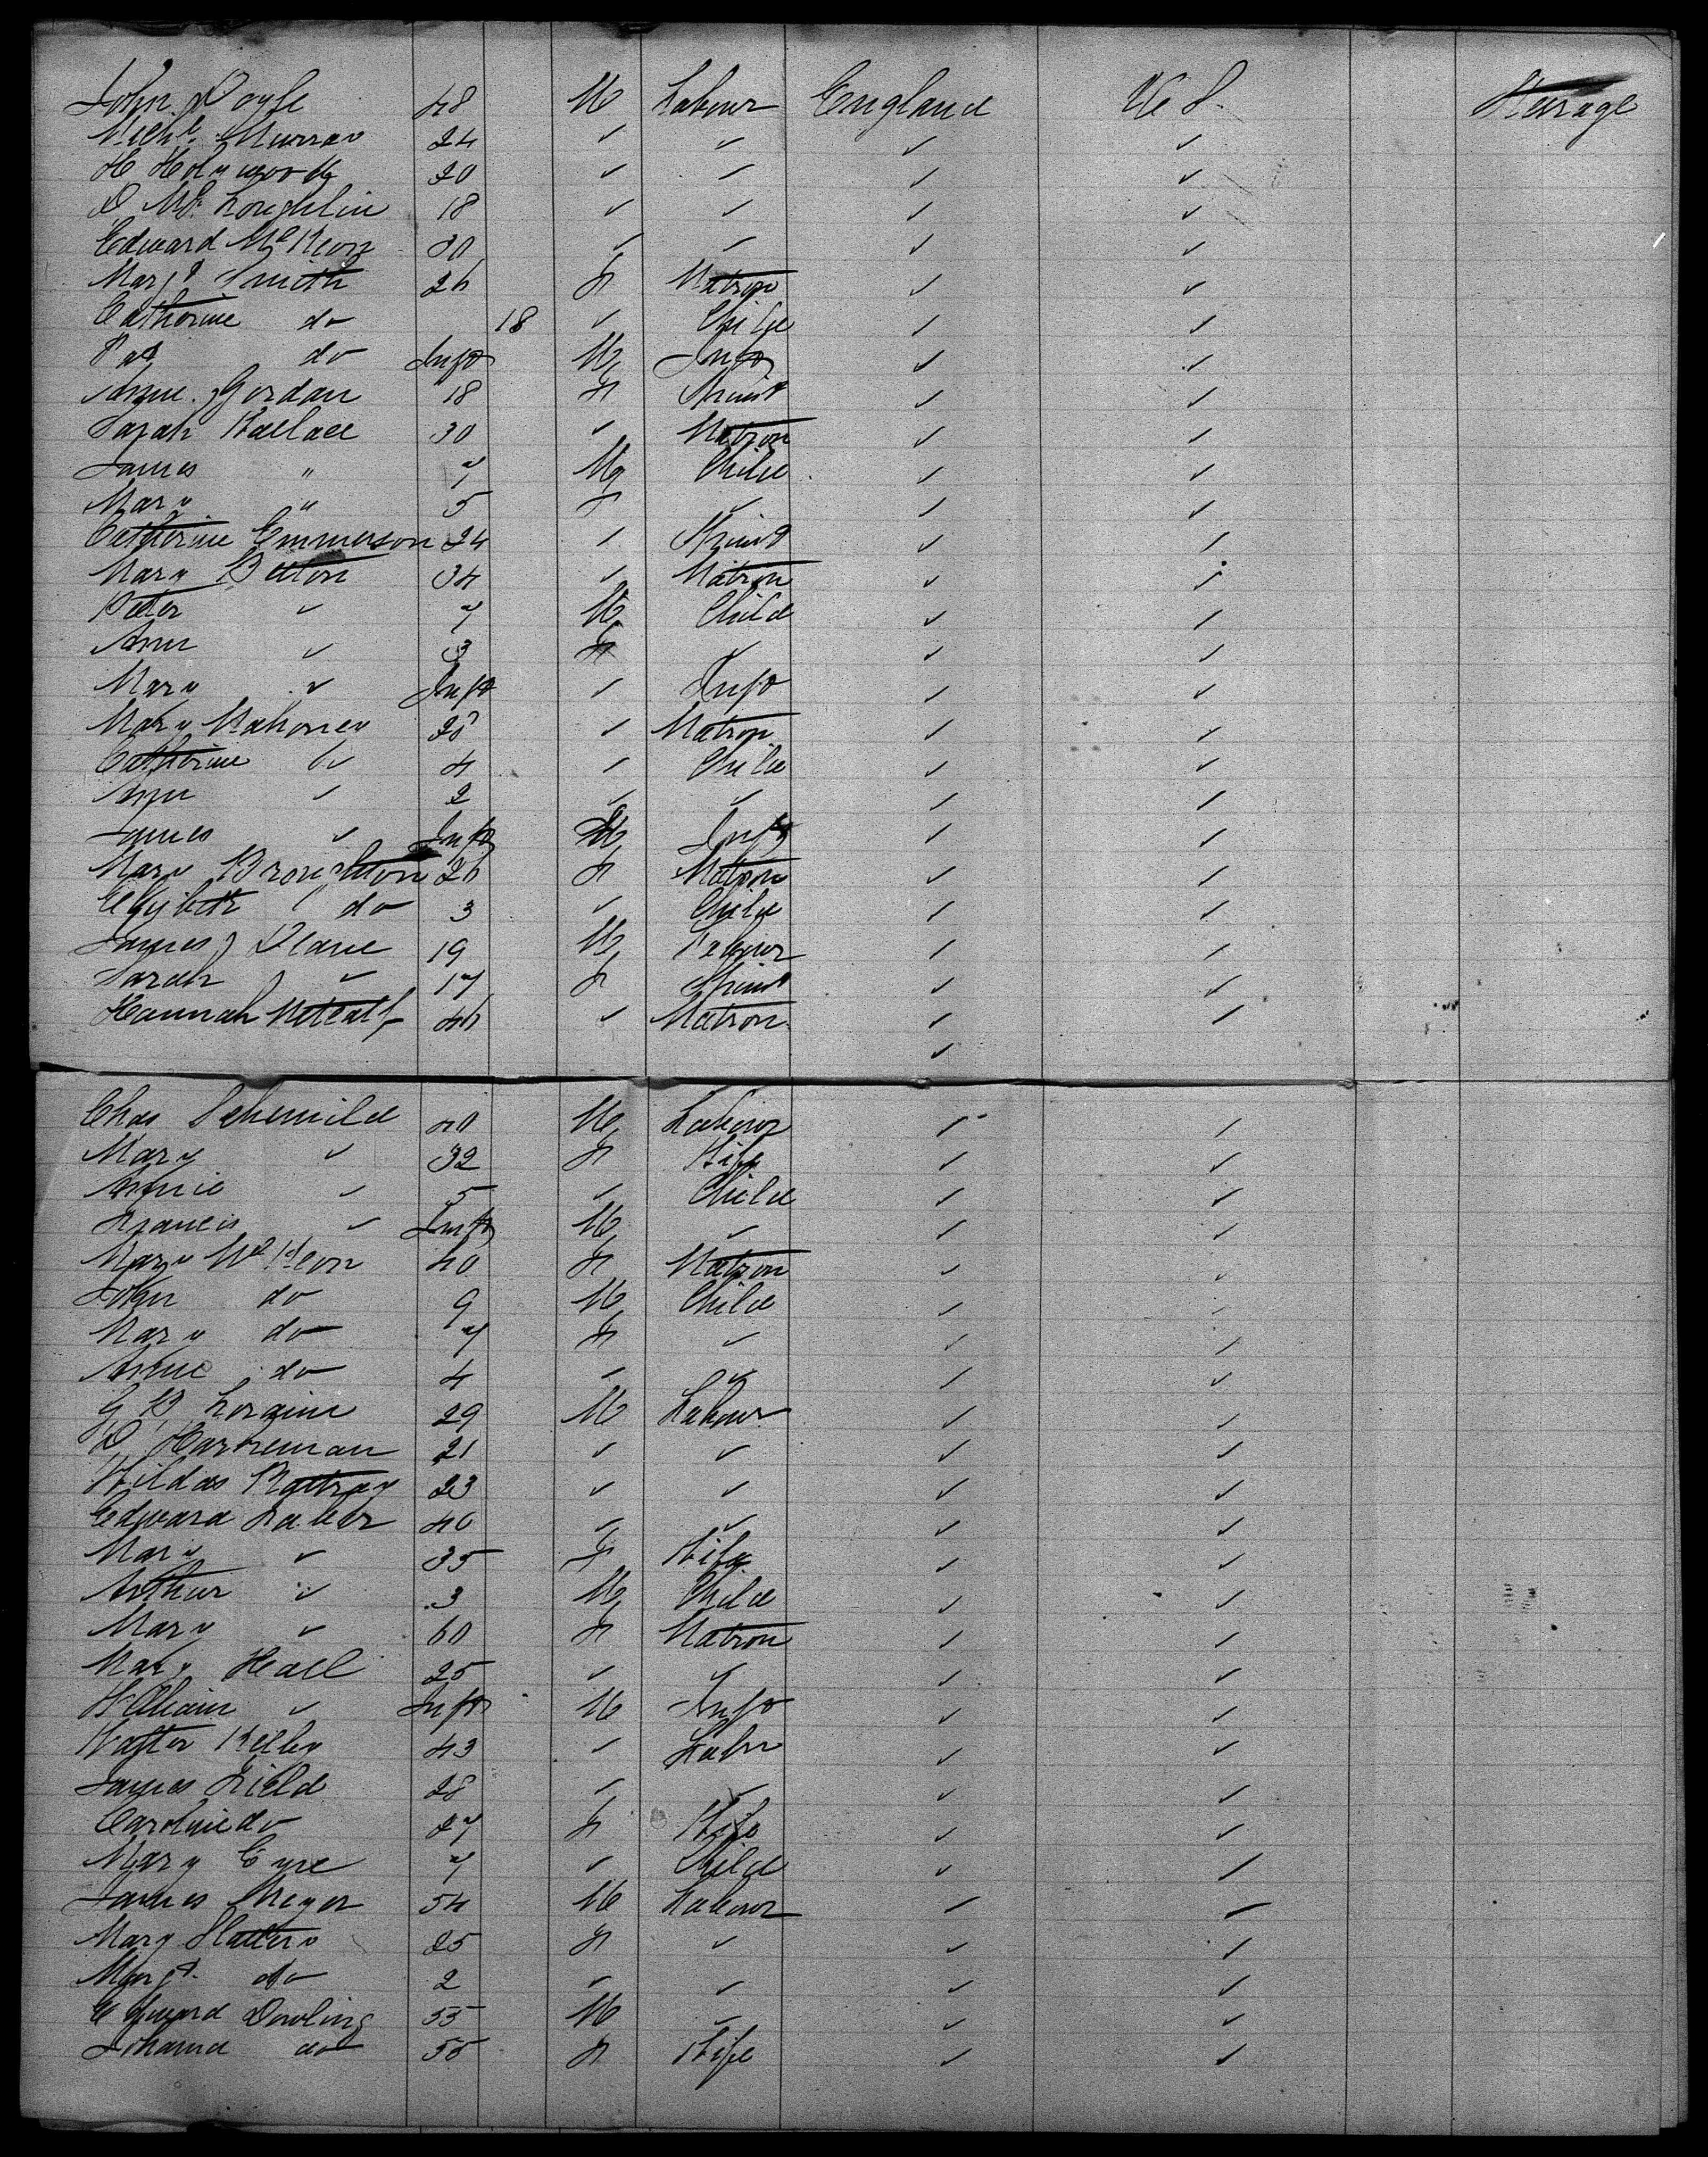 John Doyle 48 M Labour England U S. Steerage
Michl. Murray 24 ✓ ✓ ✓ ✓
H Holywood 20 ✓ ✓ ✓ ✓
D Mc Loughlin 18 ✓ ✓ ✓ ✓
Edward Mc Keon 30 ✓ ✓ ✓ ✓
Margt Smith 26 F Matron ✓ ✓
Catherine do 18 ✓ Child ✓ ✓
Pat do Inft M Inft ✓ ✓
Anne Jordan 18 F ✓ ✓
Sarah Wallace 30 ✓ Matron ✓ ✓
James " 7 M Child ✓ ✓
Mary " 5 F ✓ ✓ ✓
Catherine Emmerson 24 ✓ ✓ ✓
Mary 34 ✓ Matron ✓ ✓
Peter ✓ 7 M Child ✓ ✓
Ann ✓ 3 F ✓ ✓ ✓
Mary ✓ Inft ✓ Inft ✓ ✓
Mary Mahoney 28 ✓ Matron ✓ ✓
Catherine ✓ 4 ✓ Child ✓ ✓
Ann ✓ 2 ✓ ✓ ✓ ✓
James ✓ Inft M Inft ✓ ✓
Mary Broughton 26 F Matron ✓ ✓
Elizbeth do 3 ✓ Child ✓ ✓
James Deane 19 M Labour ✓ ✓
Sarah ✓ 17 F ✓ ✓
Hannah Metcalf 46 ✓ Matron ✓ ✓
✓
Chas 40 M Labour ✓ ✓
Mary ✓ 32 F Wife ✓ ✓
Annie ✓ 5 ✓ Child ✓ ✓
Francis ✓ Inft M ✓ ✓ ✓
Mary Mc Keon 40 F Matron ✓ ✓
John do 9 M Child ✓ ✓
Mary do 7 F ✓ ✓ ✓
Anne do 4 ✓ ✓ ✓ ✓
G B 29 M Labour ✓ ✓
D Harreman 21 ✓ ✓ ✓ ✓
23 ✓ ✓ ✓ ✓
Edward 40 ✓ ✓ ✓ ✓
Mary ✓ 35 F Wife ✓ ✓
Arthur ✓ 3 M Child ✓ ✓
Mary ✓ 60 F Matron ✓ ✓
Mary Hall 25 ✓ ✓ ✓ ✓
William ✓ Inft M Inft ✓ ✓
Walter 43 ✓ Labr ✓ ✓
James Field 28 ✓ ✓ ✓ ✓
Caroline do 27 F Wife ✓ ✓
Mary Eyre 7 ✓ Child ✓ ✓
James 54 M Labour ✓ ✓
Mary Slattery 25 F ✓ ✓ ✓
Margt. do 2 ✓ ✓ ✓ ✓
Edward Dowling 55 M ✓ ✓ ✓
Johanna do 55 F Wife ✓ ✓